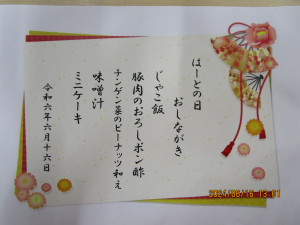 はーとの日
おしながき
じゃこ飯
豚肉のおろしポン酢
チンゲン菜のピーナッツ和え
味噌汁
ミニケーキ
令和六年六月十六日
2024/06/16 13:01